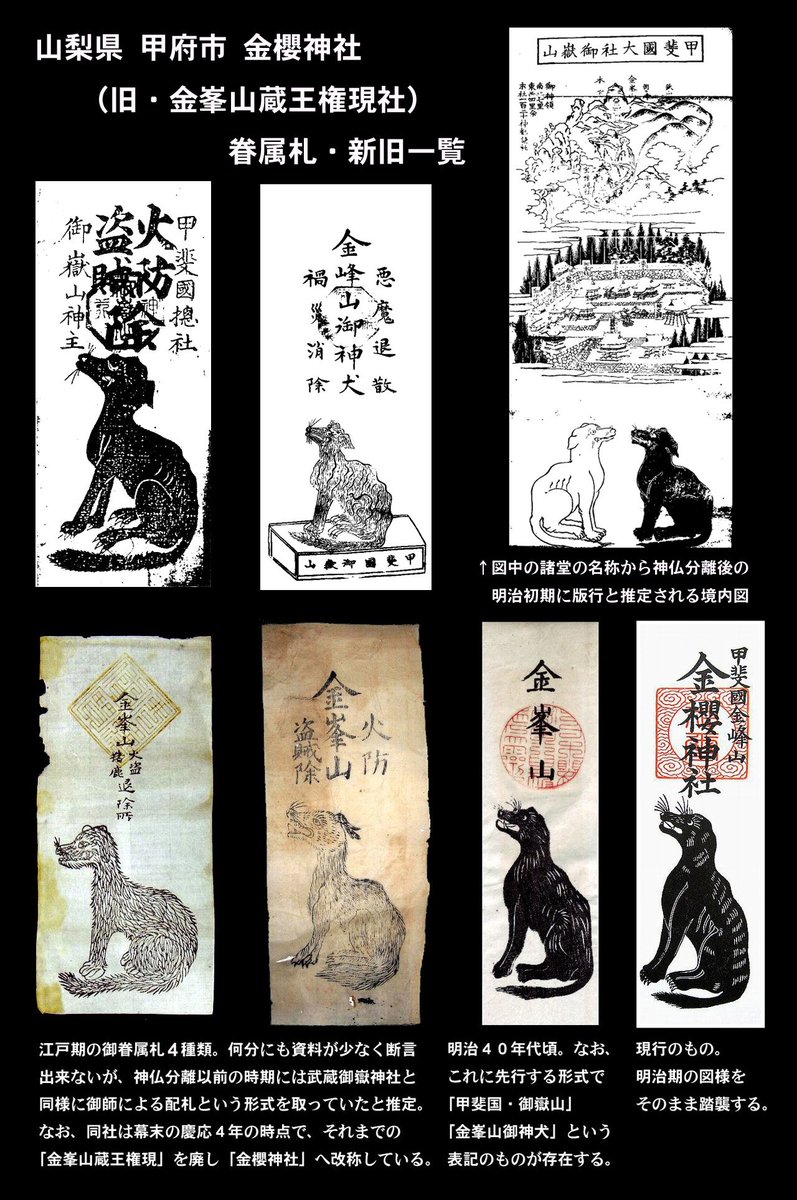 山梨県 甲府市 金櫻神社
（旧・金峯山蔵王権現社）
眷属札・新旧一覧
甲斐國總社
火防
盗賊除
御嶽山神王
悪魔退散
金峰山御神犬
禍災消除
山嶽御國斐甲
山嶽御社大國斐甲
↑図中の諸堂の名称から神仏分離後の
明治初期に版行と推定される境内図
金峯山
火盗
退除所
火防
金峯山
盗賊除
金峯山
甲斐國金峰山
金櫻神社
江戸期の御眷属札４種類。何分にも資料が少なく断言
出来ないが、神仏分離以前の時期には武蔵御嶽神社と
同様に御師による配札という形式を取っていたと推定。
なお、同社は幕末の慶応４年の時点で、それまでの
「金峯山蔵王権現」を廃し「金櫻神社」へ改称している。
明治４０年代頃。なお、
これに先行する形式で
「甲斐国・御嶽山」
「金峯山御神犬」という
表記のものが存在する。
現行のもの。
明治期の図様を
そのまま踏襲する。